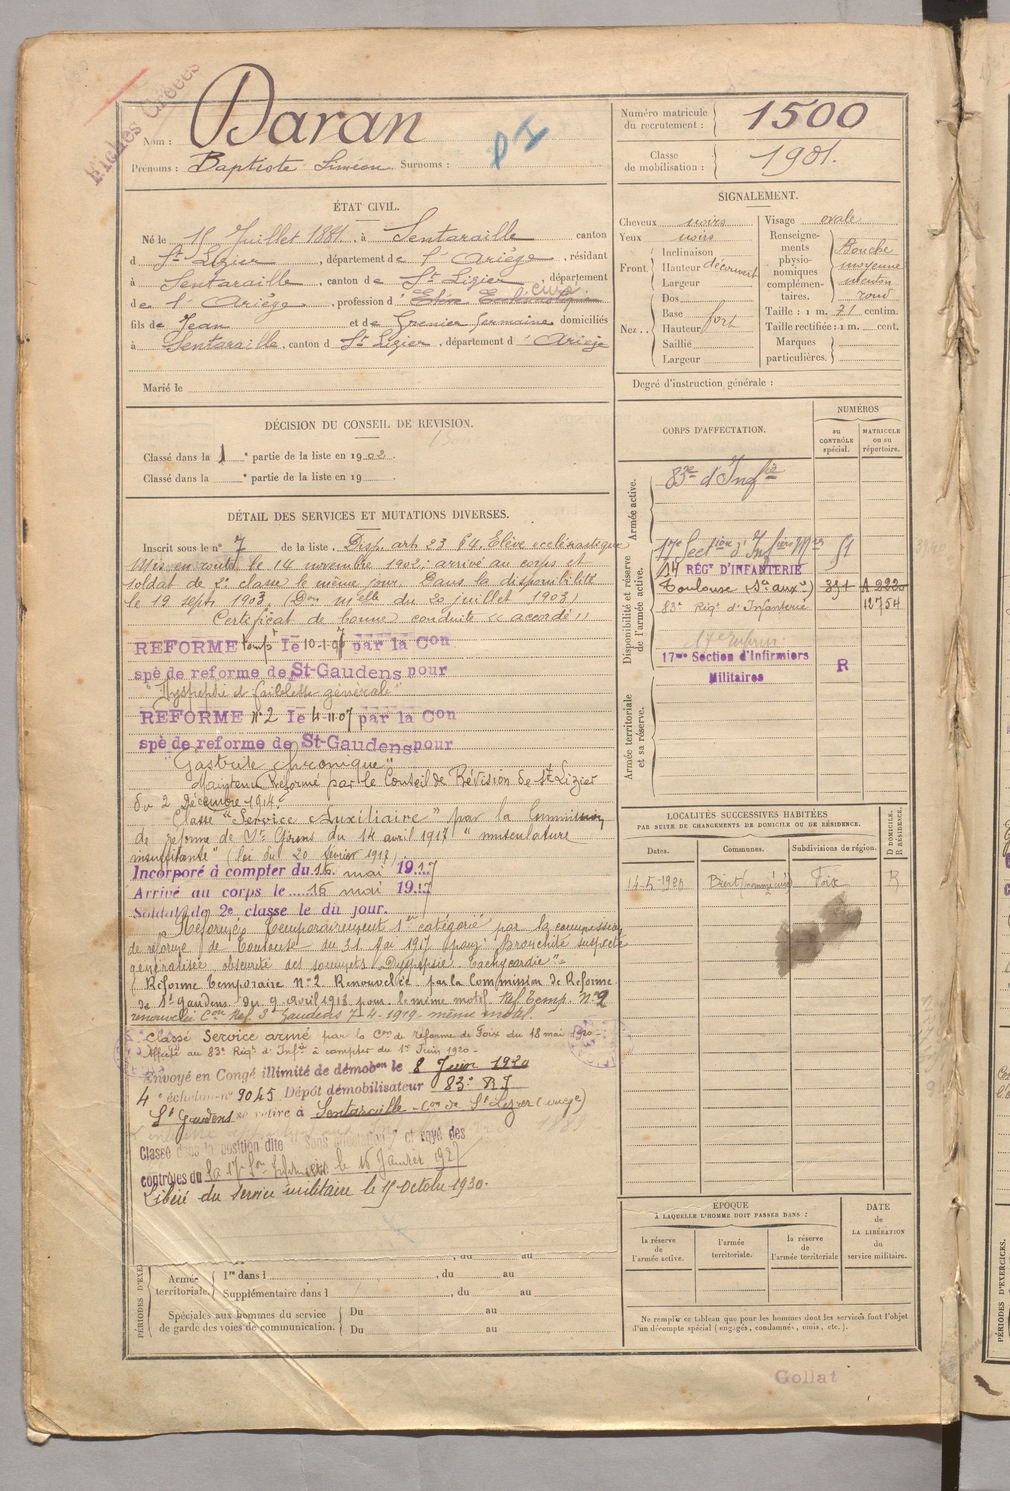 Fiches Créées
Nom : Daran
Prénoms : Baptiste Simion Surnoms :
Numéro matricule du recrutement : 1500
Classe de mobilisation : 1901.
ÉTAT CIVIL.
Né le 15 Juillet 1881, à Sentaraille canton
d St Lizier, département de l'Ariège, résidant
à Sentaraille, canton de St Lizier, département
de l'Ariège, profession d' Elève Ecclésiastique curé
fils de Jean et de Grenier Germaine domiciliés
à Sentaraille, canton d St Lizier, département d'Ariège
Marié le
SIGNALEMENT.
Cheveux noirs
Yeux noirs
Front. Inclinaison
Hauteur découvert
Largeur
Nez.. Dos
Base
Hauteur fort
Saillie
Largeur
Visage ovale
Renseignements physionomiques complémentaires. Bouche moyenne menton rond
Taille : 1 m. 71 centim.
Taille rectifiée : 1 m. cent.
Marques particulières.
Degré d'instruction générale :
DÉCISION DU CONSEIL DE REVISION.
Classé dans la 1 e partie de la liste en 1902.
Classé dans la e partie de la liste en 19
DÉTAIL DES SERVICES ET MUTATIONS DIVERSES.
Inscrit sous le n° 7 de la liste. Disp. art. 23 § 4. Elève ecclésiastique
Mis en route le 14 novembre 1902; arrivé au corps et
soldat de 2e classe le même jour. Dans la disponibilité
le 19 septe 1903, (Don m'elle du 20 juillet 1903)
Certificat de bonne conduite « accordé »
REFORME temp. le 10-1-07 par la Con
spè de reforme de St-Gaudens pour
"Dyspepsie et faiblesse générale"
REFORME N°2 le 4-11-07 par la Con
spè de reforme de St-Gaudens pour
"Gastrite chronique"
Maintenu Réformé par le Conseil de Révision de St Lizier
du 2 Décembre 1914.
Classé "Service Auxiliaire" par la Commission
de réforme de St Girons du 14 avril 1917 "musculature
insuffisante" (loi du 20 février 1917)
Incorporé à compter du 16 mai 1917
Arrivé au corps le 16 mai 1917
Soldat de 2e classe le dit jour.
Réformé Temporairement 1re catégorie par la commission
de réforme de Toulouse du 31 Mai 1917 pour: bronchite suspecte
généralisée, obscurité des sommets Dyspepsie. Tachycardie"
Réforme temporaire N°2 Renouvelée par la Commission de Réforme
de St Gaudens du 9 avril 1918 pour le même motif. Ref. Temp. N°2
renouvelée Con Ref. St Gaudens 7-4-1919 même motif
Classé Service armé par la Con de réforme de Foix du 18 mai 1920
Affecté au 83e Régt d'Infie à compter du 1er Juin 1920
Envoyé en Congé illimité de démobon le 8 Juin 1920
4e échelon n° 9045 Dépôt démobilisateur 83e RI
St Gaudens se retire à Sentaraille - Con de St Lizier
Classé dans la position dite "Sans affectation" et rayé des
contrôles du la 17e Son Infirmiers le 16 Janvier 1927
Libéré du service militaire le 15 Octobre 1930.
CORPS D'AFFECTATION.
NUMÉROS
au CONTRÔLE spécial.
MATRICULE ou au répertoire.
Armée active.
83me d'Infie
Disponibilité et réserve de l'armée active.
17me Section d'Infirmiers Mres 51
14 RÉGt D'INFANTERIE
Toulouse (Sce auxre) 351 A 2220
83e Régt d'Infanterie 12754
17me Section d'Infirmiers Militaires R
Armée territoriale et sa réserve.
LOCALITÉS SUCCESSIVES HABITÉES
PAR SUITE DE CHANGEMENTS DE DOMICILE OU DE RÉSIDENCE.
Dates. Communes. Subdivisions de région. D DOMICILE. R RÉSIDENCE.
14-5-1920 Biert (nommé curé) Foix R
ÉPOQUE
À LAQUELLE L'HOMME DOIT PASSER DANS :
la réserve de l'armée active.
l'armée territoriale.
la réserve de l'armée territoriale
DATE de LA LIBÉRATION du service militaire.
PÉRIODES D'EXE
, du au
Armée territoriale. 1re dans l , du au
Supplémentaire dans l , du au
Spéciales aux hommes du service de garde des voies de communication. Du au
Du au
Ne remplir ce tableau que pour les hommes dont les services font l'objet
d'un décompte spécial (engagés, condamnés, omis, etc.).
Gollat
PÉRIODES D'EXERCICES.